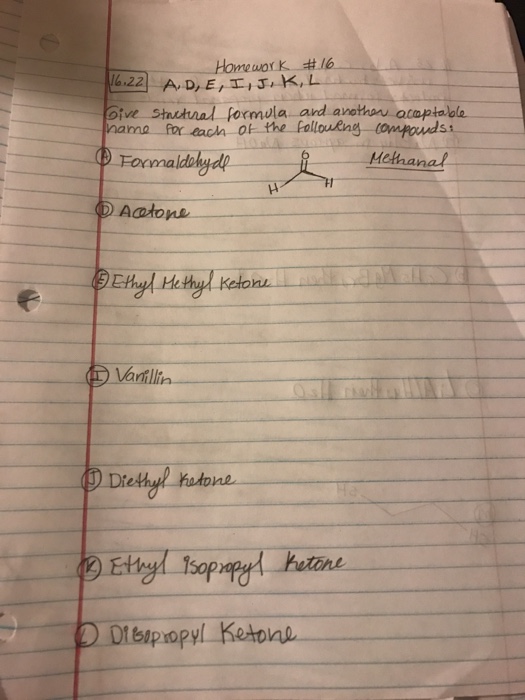 Homework #16
16.22 A, D, E, I, J, K, L
Give structural formula and another acceptable
name for each of the following compounds:
A Formaldehyde O H H Methanal
D Acetone
E Ethyl Methyl Ketone
I Vanillin
J Diethyl Ketone
K Ethyl isopropyl Ketone
L Diisopropyl Ketone